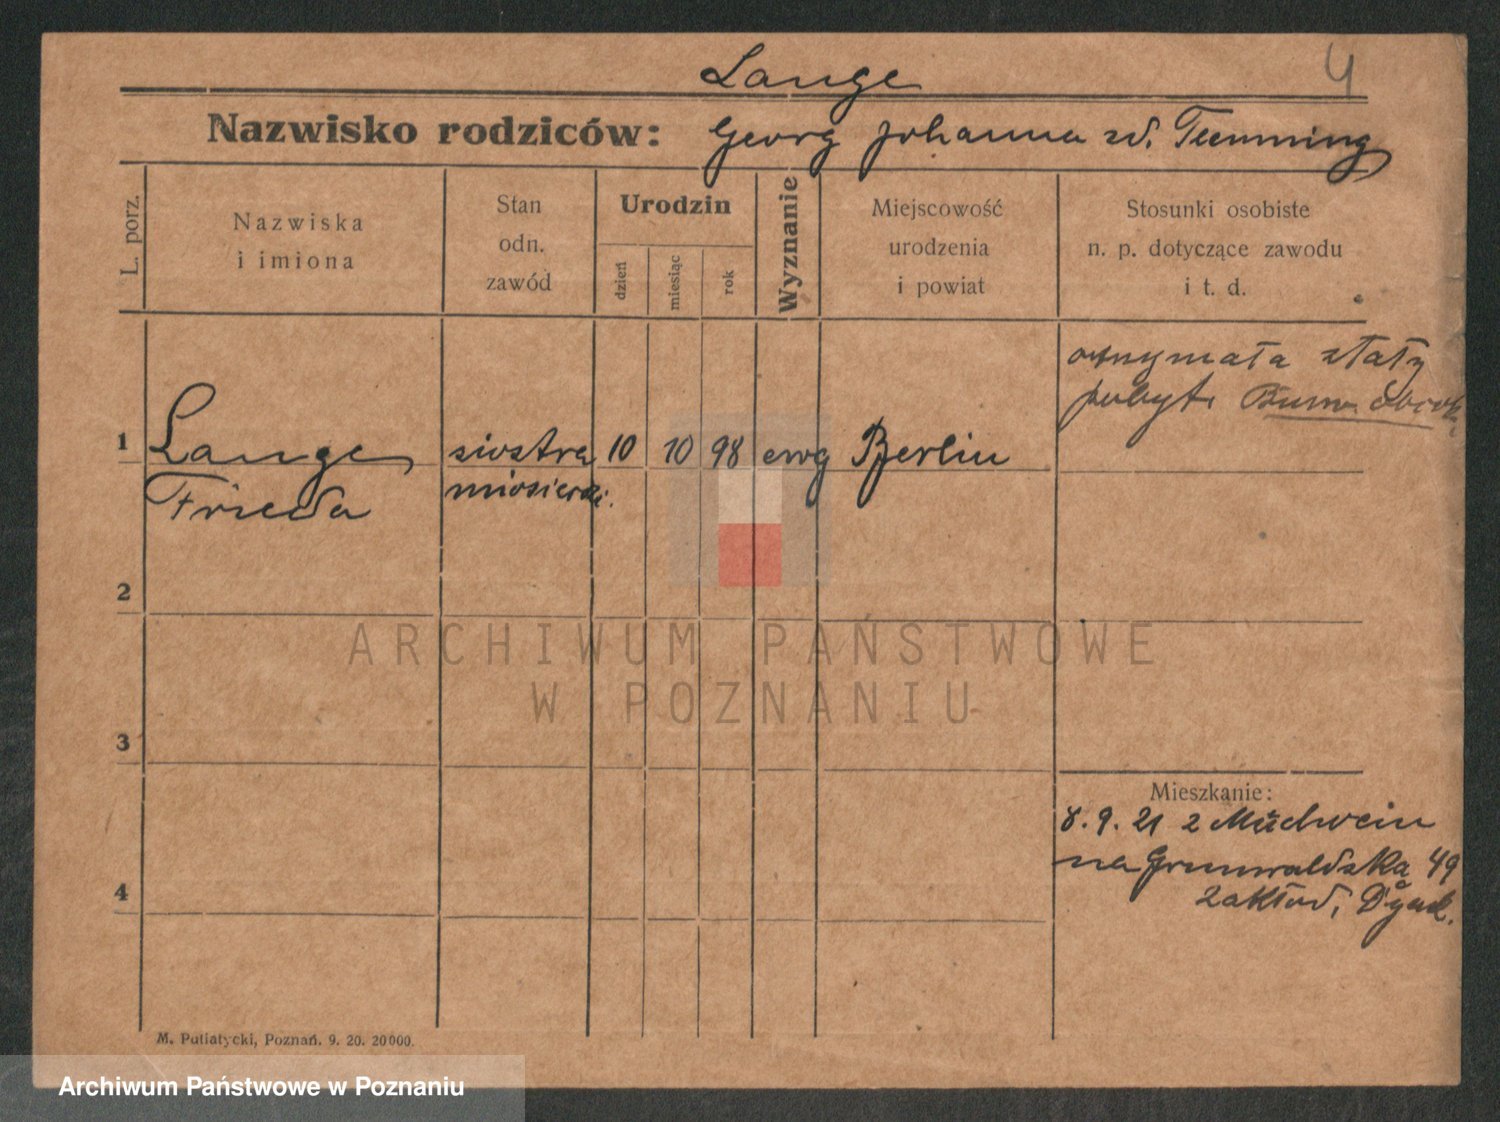 Lange 4
Nazwisko rodziców: Georg Johanna zd. Temming
L. porz.
Nazwiska
i imiona
Stan
odn.
zawód
Urodzin
dzień
miesiąc
rok
Wyznanie
Miejscowość
urodzenia
i powiat
Stosunki osobiste
n. p. dotyczące zawodu
i t. d.
otrzymała stały
pobyt.
1 Lange siostra 10 10 98 ewg Berlin
Frieda miosierdzi.
2
3
4
Mieszkanie:
8. 9. 21 z
na Grunwaldzka 49
zakład, Dyak.
M. Putiatycki, Poznań. 9. 20. 20000.
ARCHIWUM PAŃSTWOWE
W POZNANIU
Archiwum Państwowe w Poznaniu